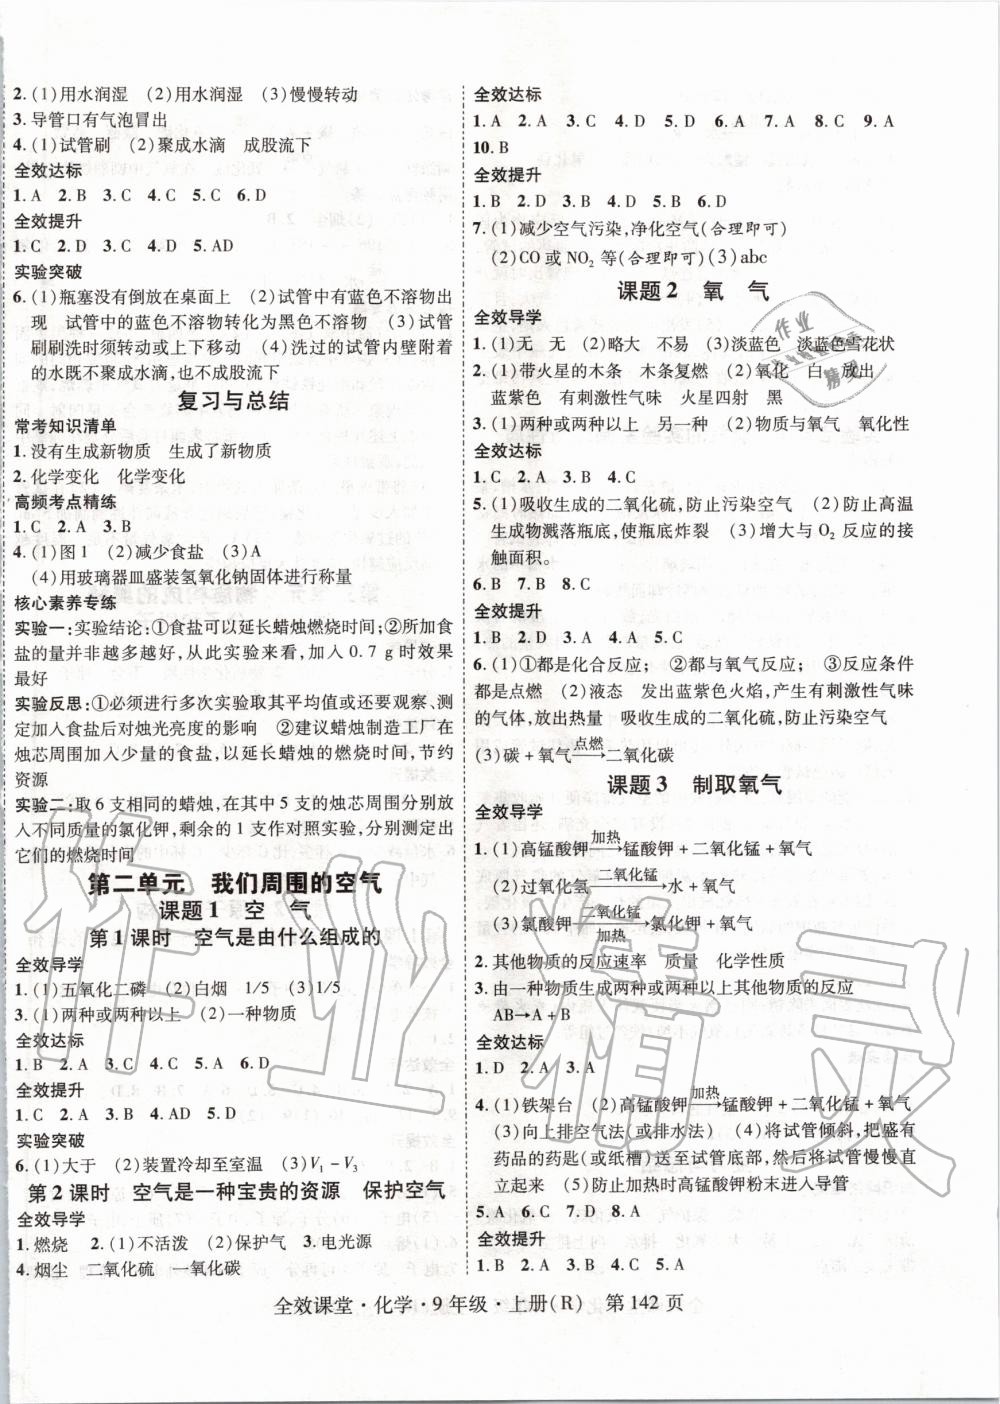 2.(1)用水润湿 (2)用水润湿 (3)慢慢转动
3.导管口有气泡冒出
4.(1)试管刷 (2)聚成水滴 成股流下
全效达标
1.A 2.B 3.C 4.C 5.C 6.D
全效提升
1.C 2.D 3.C 4.D 5.AD
实验突破
6.(1)瓶塞没有倒放在桌面上 (2)试管中有蓝色不溶物出
现 试管中的蓝色不溶物转化为黑色不溶物 (3)试管
刷刷洗时须转动或上下移动 (4)洗过的试管内壁附着
的水既不聚成水滴,也不成股流下
复习与总结
常考知识清单
1.没有生成新物质 生成了新物质
2.化学变化 化学变化
高频考点精练
1.C 2.A 3.B
4.(1)图1 (2)减少食盐 (3)A
(4)用玻璃器皿盛装氢氧化钠固体进行称量
核心素养专练
实验一:实验结论:①食盐可以延长蜡烛燃烧时间;②所加食
盐的量并非越多越好,从此实验来看,加入0.7 g时效果
最好
实验反思:①必须进行多次实验取其平均值或还要观察、测
定加入食盐后对烛光亮度的影响 ②建议蜡烛制造工厂在
烛芯周围加入少量的食盐,以延长蜡烛的燃烧时间,节约
资源
实验二:取6支相同的蜡烛,在其中5支的烛芯周围分别放
入不同质量的氯化钾,剩余的1支作对照实验,分别测定出
它们的燃烧时间
第二单元 我们周围的空气
课题1 空 气
第1课时 空气是由什么组成的
全效导学
1.(1)五氧化二磷 (2)白烟 1/5 (3)1/5
3.(1)两种或两种以上 (2)一种物质
全效达标
1.B 2.A 3.C 4.C 5.A 6.D
全效提升
1.C 2.A 3.B 4.AD 5.D
实验突破
6.(1)大于 (2)装置冷却至室温 (3)V₁－V₃
第2课时 空气是一种宝贵的资源 保护空气
全效导学
1.燃烧 2.(1)不活泼 (2)保护气 3.电光源
4.烟尘 二氧化硫 一氧化碳
全效达标
1.A 2.A 3.C 4.D 5.D 6.A 7.A 8.C 9.A
10.B
全效提升
1.B 2.D 3.D 4.B 5.B 6.D
7.(1)减少空气污染,净化空气(合理即可)
(2)CO或NO₂等(合理即可)(3)abc
课题2 氧 气
全效导学
1.(1)无 无 (2)略大 不易 (3)淡蓝色 淡蓝色雪花状
2.(1)带火星的木条 木条复燃 (2)氧化 白 放出
蓝紫色 有刺激性气味 火星四射 黑
3.(1)两种或两种以上 另一种 (2)物质与氧气 氧化性
全效达标
1.C 2.A 3.C 4.D
5.(1)吸收生成的二氧化硫,防止污染空气 (2)防止高温
生成物溅落瓶底,使瓶底炸裂 (3)增大与O₂反应的接
触面积。
6.B 7.B 8.D
全效提升
1.B 2.D 3.A 4.A 5.C
6.(1)①都是化合反应; ②都与氧气反应; ③反应条件
都是点燃 (2)液态 发出蓝紫色火焰,产生有刺激性气味
的气体,放出热量 吸收生成的二氧化硫,防止污染空气
(3)碳＋氧气 点燃→ 二氧化碳
课题3 制取氧气
全效导学
1.(1)高锰酸钾 加热→ 锰酸钾＋二氧化锰＋氧气
(2)过氧化氢 二氧化锰→ 水＋氧气
(3)氯酸钾 二氧化锰 加热→ 氯化钾＋氧气
2.其他物质的反应速率 质量 化学性质
3.由一种物质生成两种或两种以上其他物质的反应
AB→A＋B
全效达标
1.D 2.A 3.A
4.(1)铁架台 (2)高锰酸钾 加热→ 锰酸钾＋二氧化锰＋氧气
(3)向上排空气法(或排水法) (4)将试管倾斜,把盛有
药品的纸槽(或药匙)送至试管底部,然后将试管慢慢直
立起来 (5)防止加热时高锰酸钾粉末进入导管
5.A 6.C 7.D 8.A
全效提升
1.B 2.A 3.C 4.A 5.B
全效课堂·化学·9年级·上册(R) 第142页
作业精灵